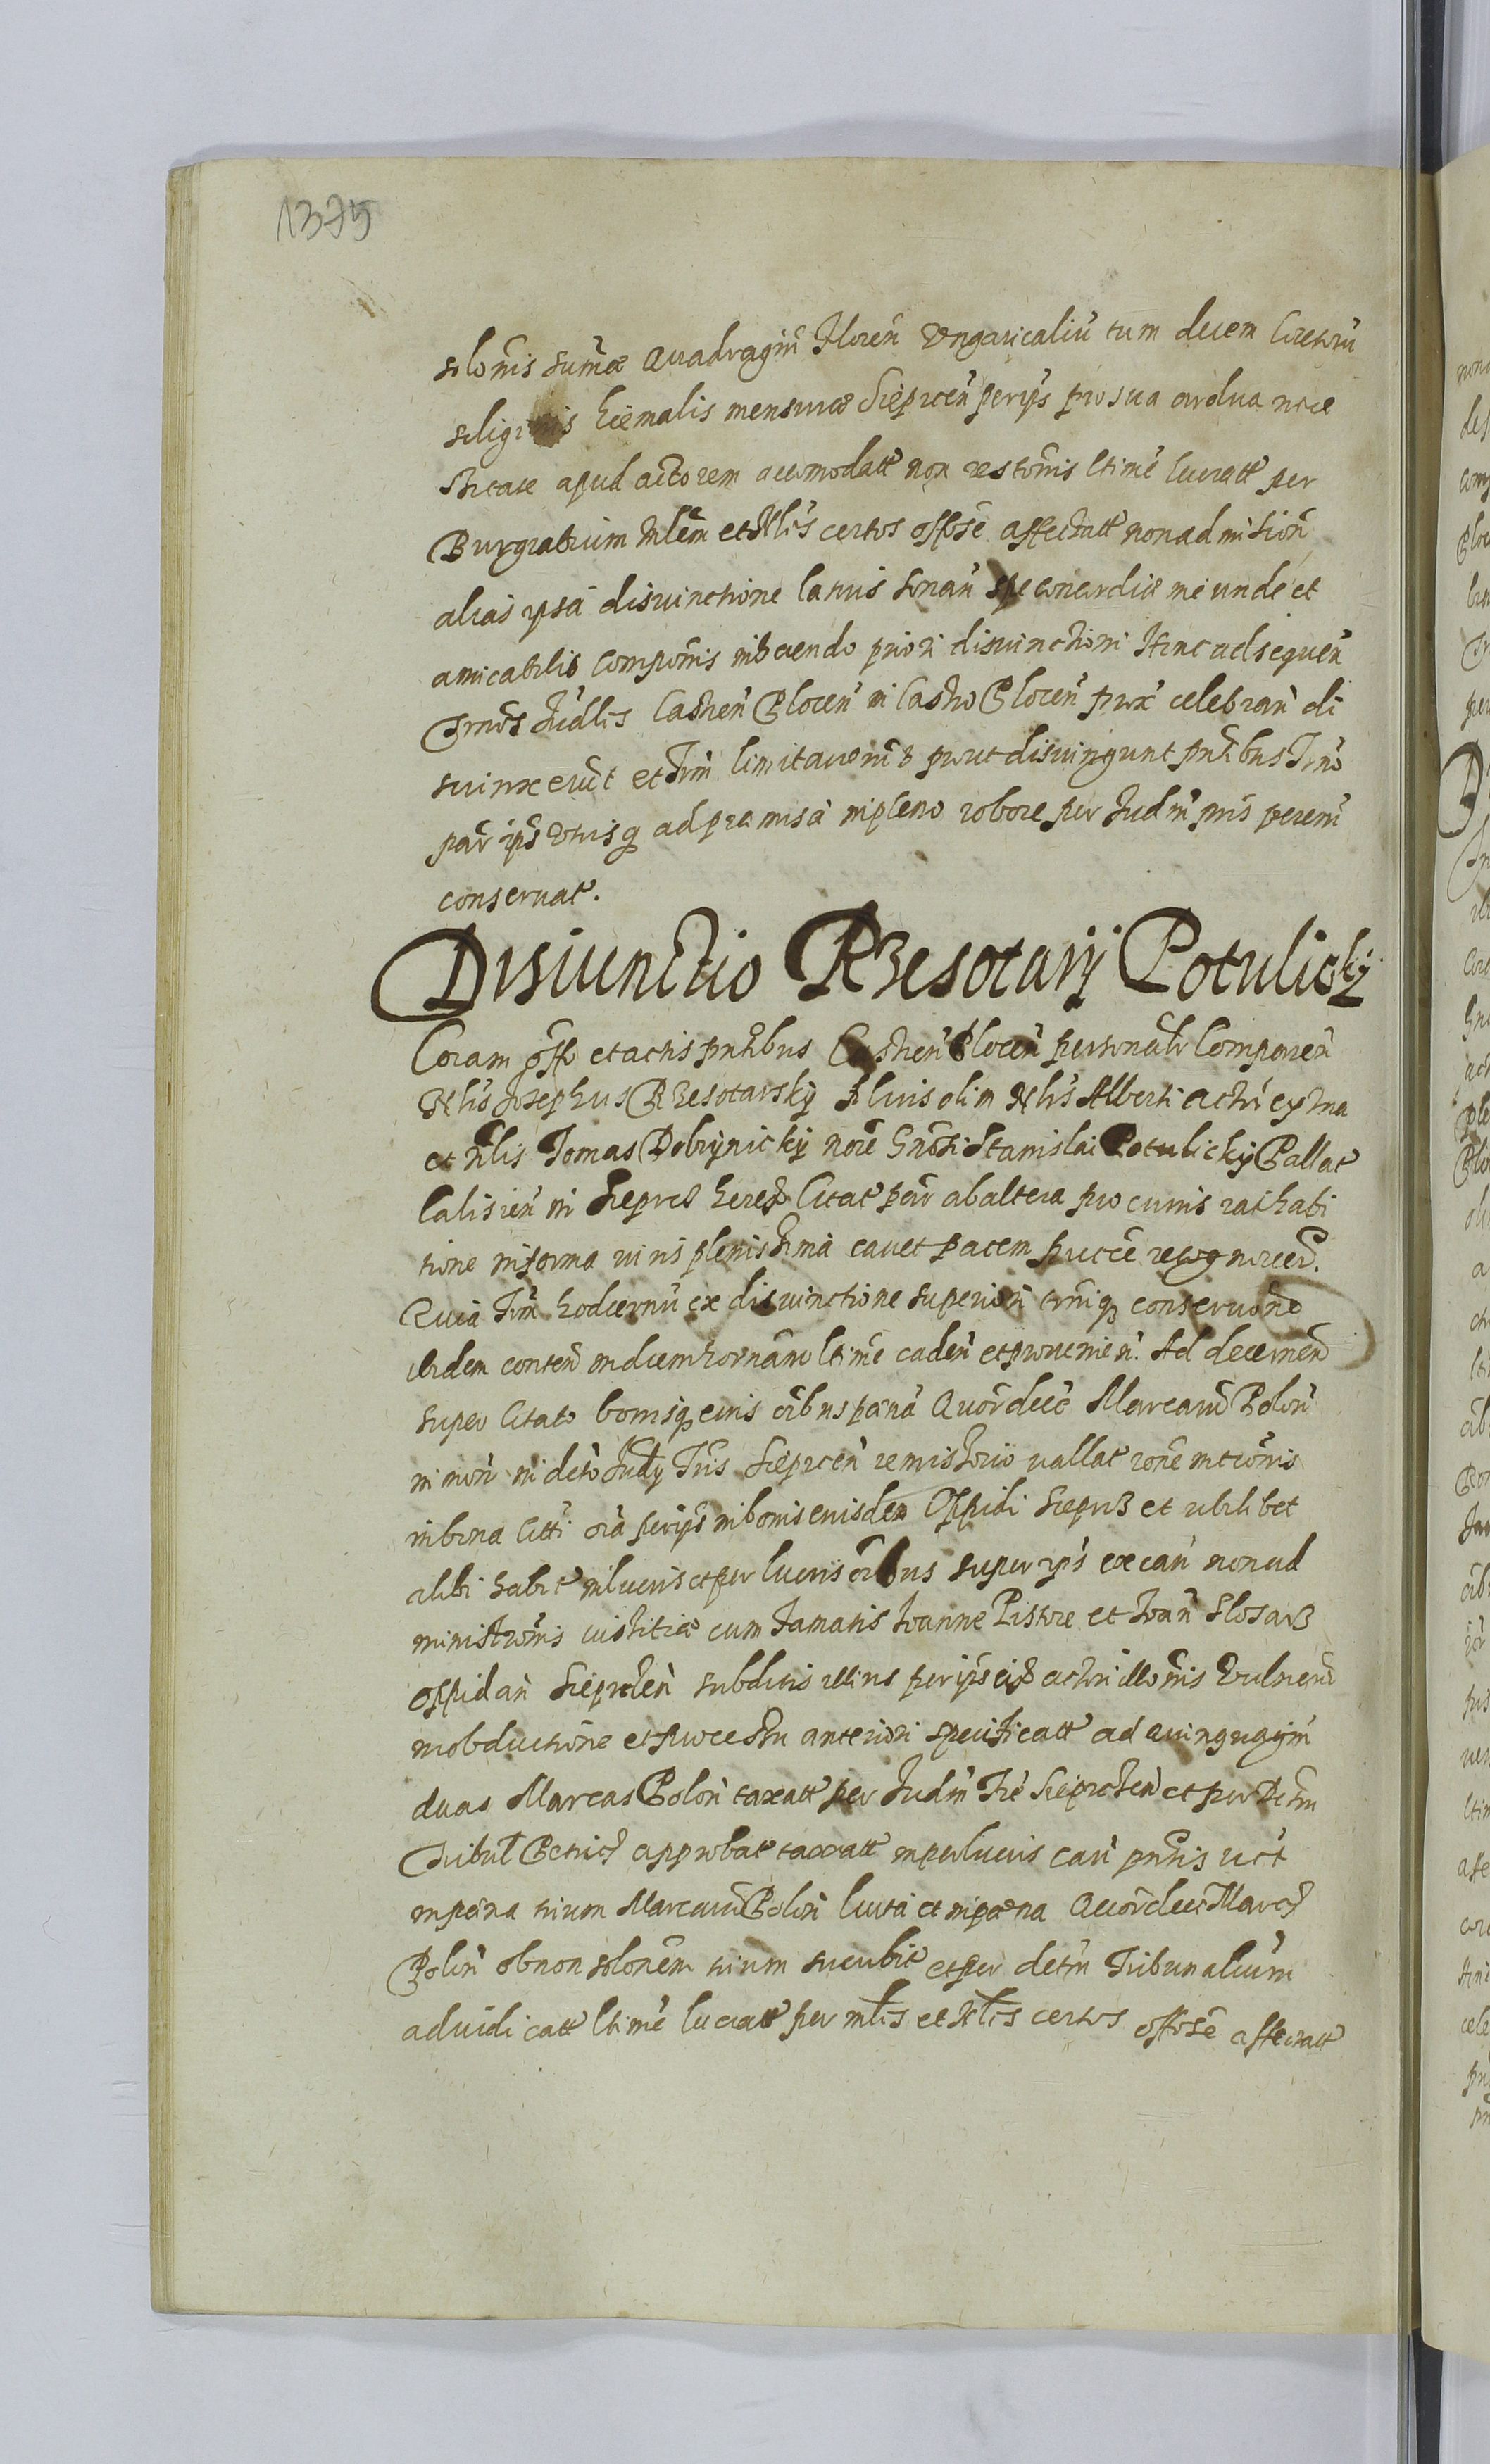 1375
solōnis sumæ Quadragin̄ Floren̄ Ungaricaliū tum decem Coretorū
siliginis hiemalis mensuræ Sieprcen̄ per ip̄s pro sua ardua nece
ssitate apud actorem accomodatt non restōnis ltimē lucratt per
Burgrabium Mlēm et Nlēs certos offōse affectatt non admision̄
alias ipsā disiunctione latius sonan̄ spe concordiæ ineundē et
amicabilis componis inhærendo priori disiunctioni Hinc ad sequen̄
Trmōs Judlis Castren̄ Plocen̄ in Castro Plocen̄ prox̄ celebran̄ di
siunxerūt et Trm̄ limitaverūt prout disiungunt pn̄tibus Trno
par̄ ips utrisq ad præmissa in pleno robore per Judm̄ pn̄s peren̄
conservat.
Disiunctio Rzesotarij Potulicky
Coram offo et actis pn̄tibus Castren̄ Plocen̄ personalr Comparen̄
Nlis Josephus Rzesotarsky Filius olim Nlis Alberti actor ex una
et Nlis Tomas Dobrynicky noīe Gnōsi Stanislai Potulicky Pallat
Calisien̄ in Sieprcz heredis Citat par̄ ab altera pro cuius rathabi
tione in forma iuris plenissima cavet partem recognover̄.
Quia Trm̄ hodiernū ex disiunctione superiori trmiq conservone
ibidem conten̄ in diem hodiernam ltimē caden̄ et provenien̄. Ad decernen̄
super Citato bonisq eius ōībus pænā Quordecē Marcarū Polon̄
in non in dēto Judy Tris Sieprcen̄ remissorio vallat rone intrōnis
in bona Citti oīa per ip̄s in bonis eiusdem Oppidi Sieprcz et ubilibet
alibi habit in lucris et per lucris oībus super ips excan̄ non ad
ministrōnis iustitiæ cum Famatis Joanne Pistore et Joan̄ Slosarz
oppidan̄ Sieprcen̄ subditis illius per ip̄s eid actori illonis Vulnerū
in obductione et processu anteriori specificatt ad quinquagin̄
duas Marcas Polon̄ taxatt per Judm̄ Tre Sieprcen̄ et per Dctm̄
Tribul Petric approbat taxatt in perlucris can̄ pn̄tis uct
in pæna trium Marcarū Polon̄ luita et in pæna Quordecē Marc
Polon̄ ob non solōnem trium sucubit et per detm̄ Tribunalium
adiudicatt ltimē lucratt per Mlis et Nlis certos offōse affectatt